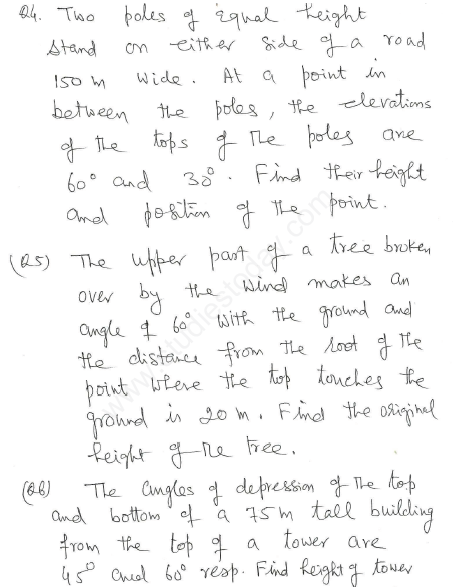 Q4. Two poles of equal height
stand on either side of a road
150 m wide. At a point in
between the poles, the elevations
of the tops of the poles are
60° and 30°. Find their height
and position of the point.
(Q5) The upper part of a tree broken
over by the wind makes an
angle of 60° with the ground and
the distance from the root of the
point where the top touches the
ground is 20 m. Find the original
height of the tree.
(Q6) The angles of depression of the top
and bottom of a 75m tall building
from the top of a tower are
45° and 60° resp. Find height of tower
www.studiestoday.com